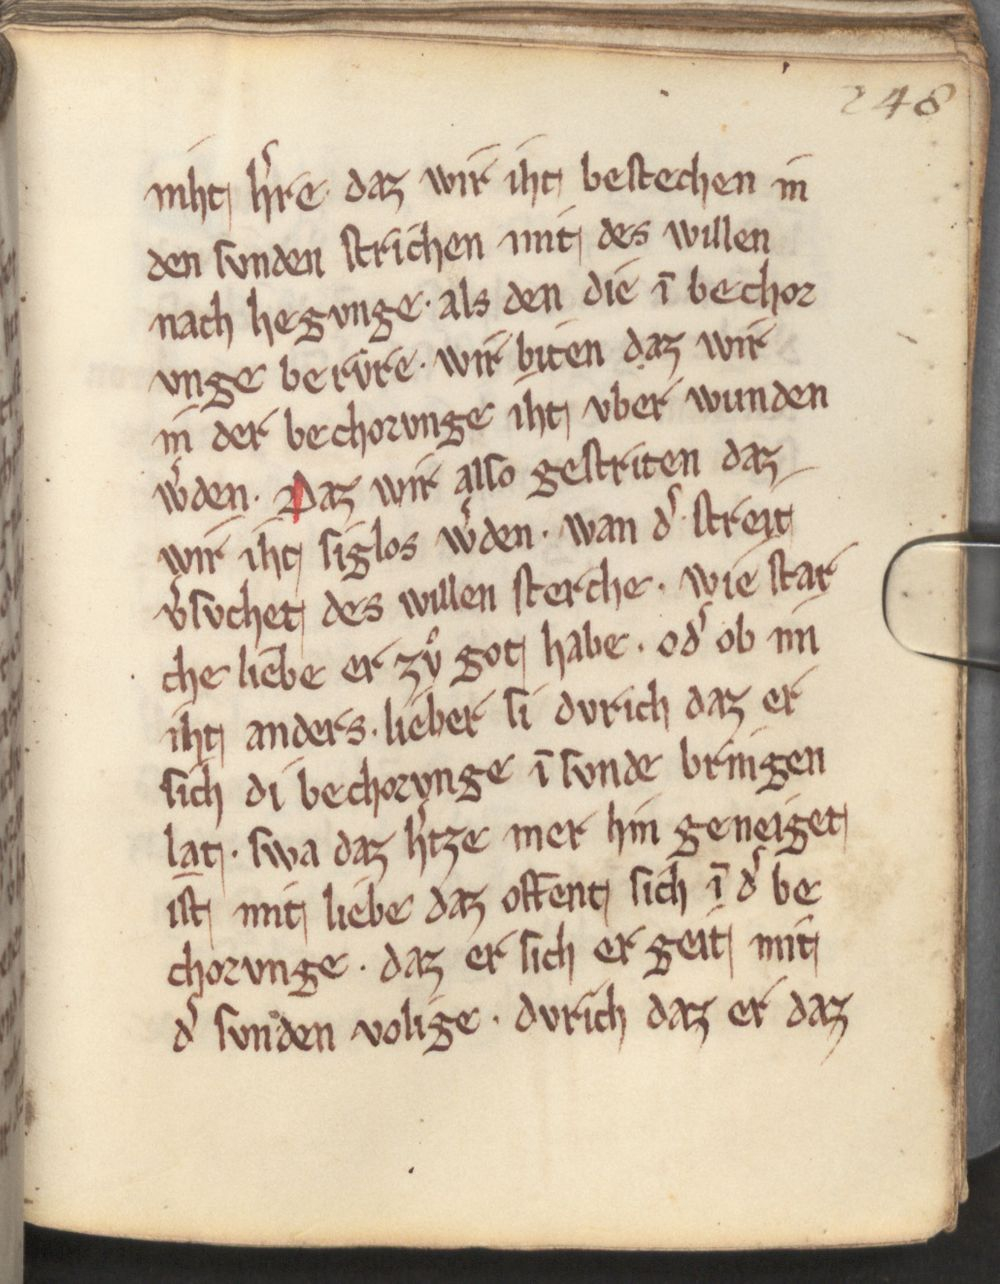 248
niht h̾re daz wir iht bestechen in
den svnden strichen mit des willen
nach hegvnge · als den die ī bechor
vnge berv̊re · wir biten daz wir
in der bechorvnge iht vber wunden
w̾den · Daz wir also gestriten daz
wir iht siglos w̾den · wan d̾ streit
v̾svchet des willen sterche · wie star
cher liebe er zv̊ got habe · od̾ ob im
iht anders lieber si dvrich daz er
sich di bechorvnge ī svnde bringen
lat · swa daz h̾tze mer hin geneiget
ist mit liebe daz offent sich ī d̾ be
chorvnge · daz er sich er geit mit
d̾ svnden volige · dvrich daz er daz